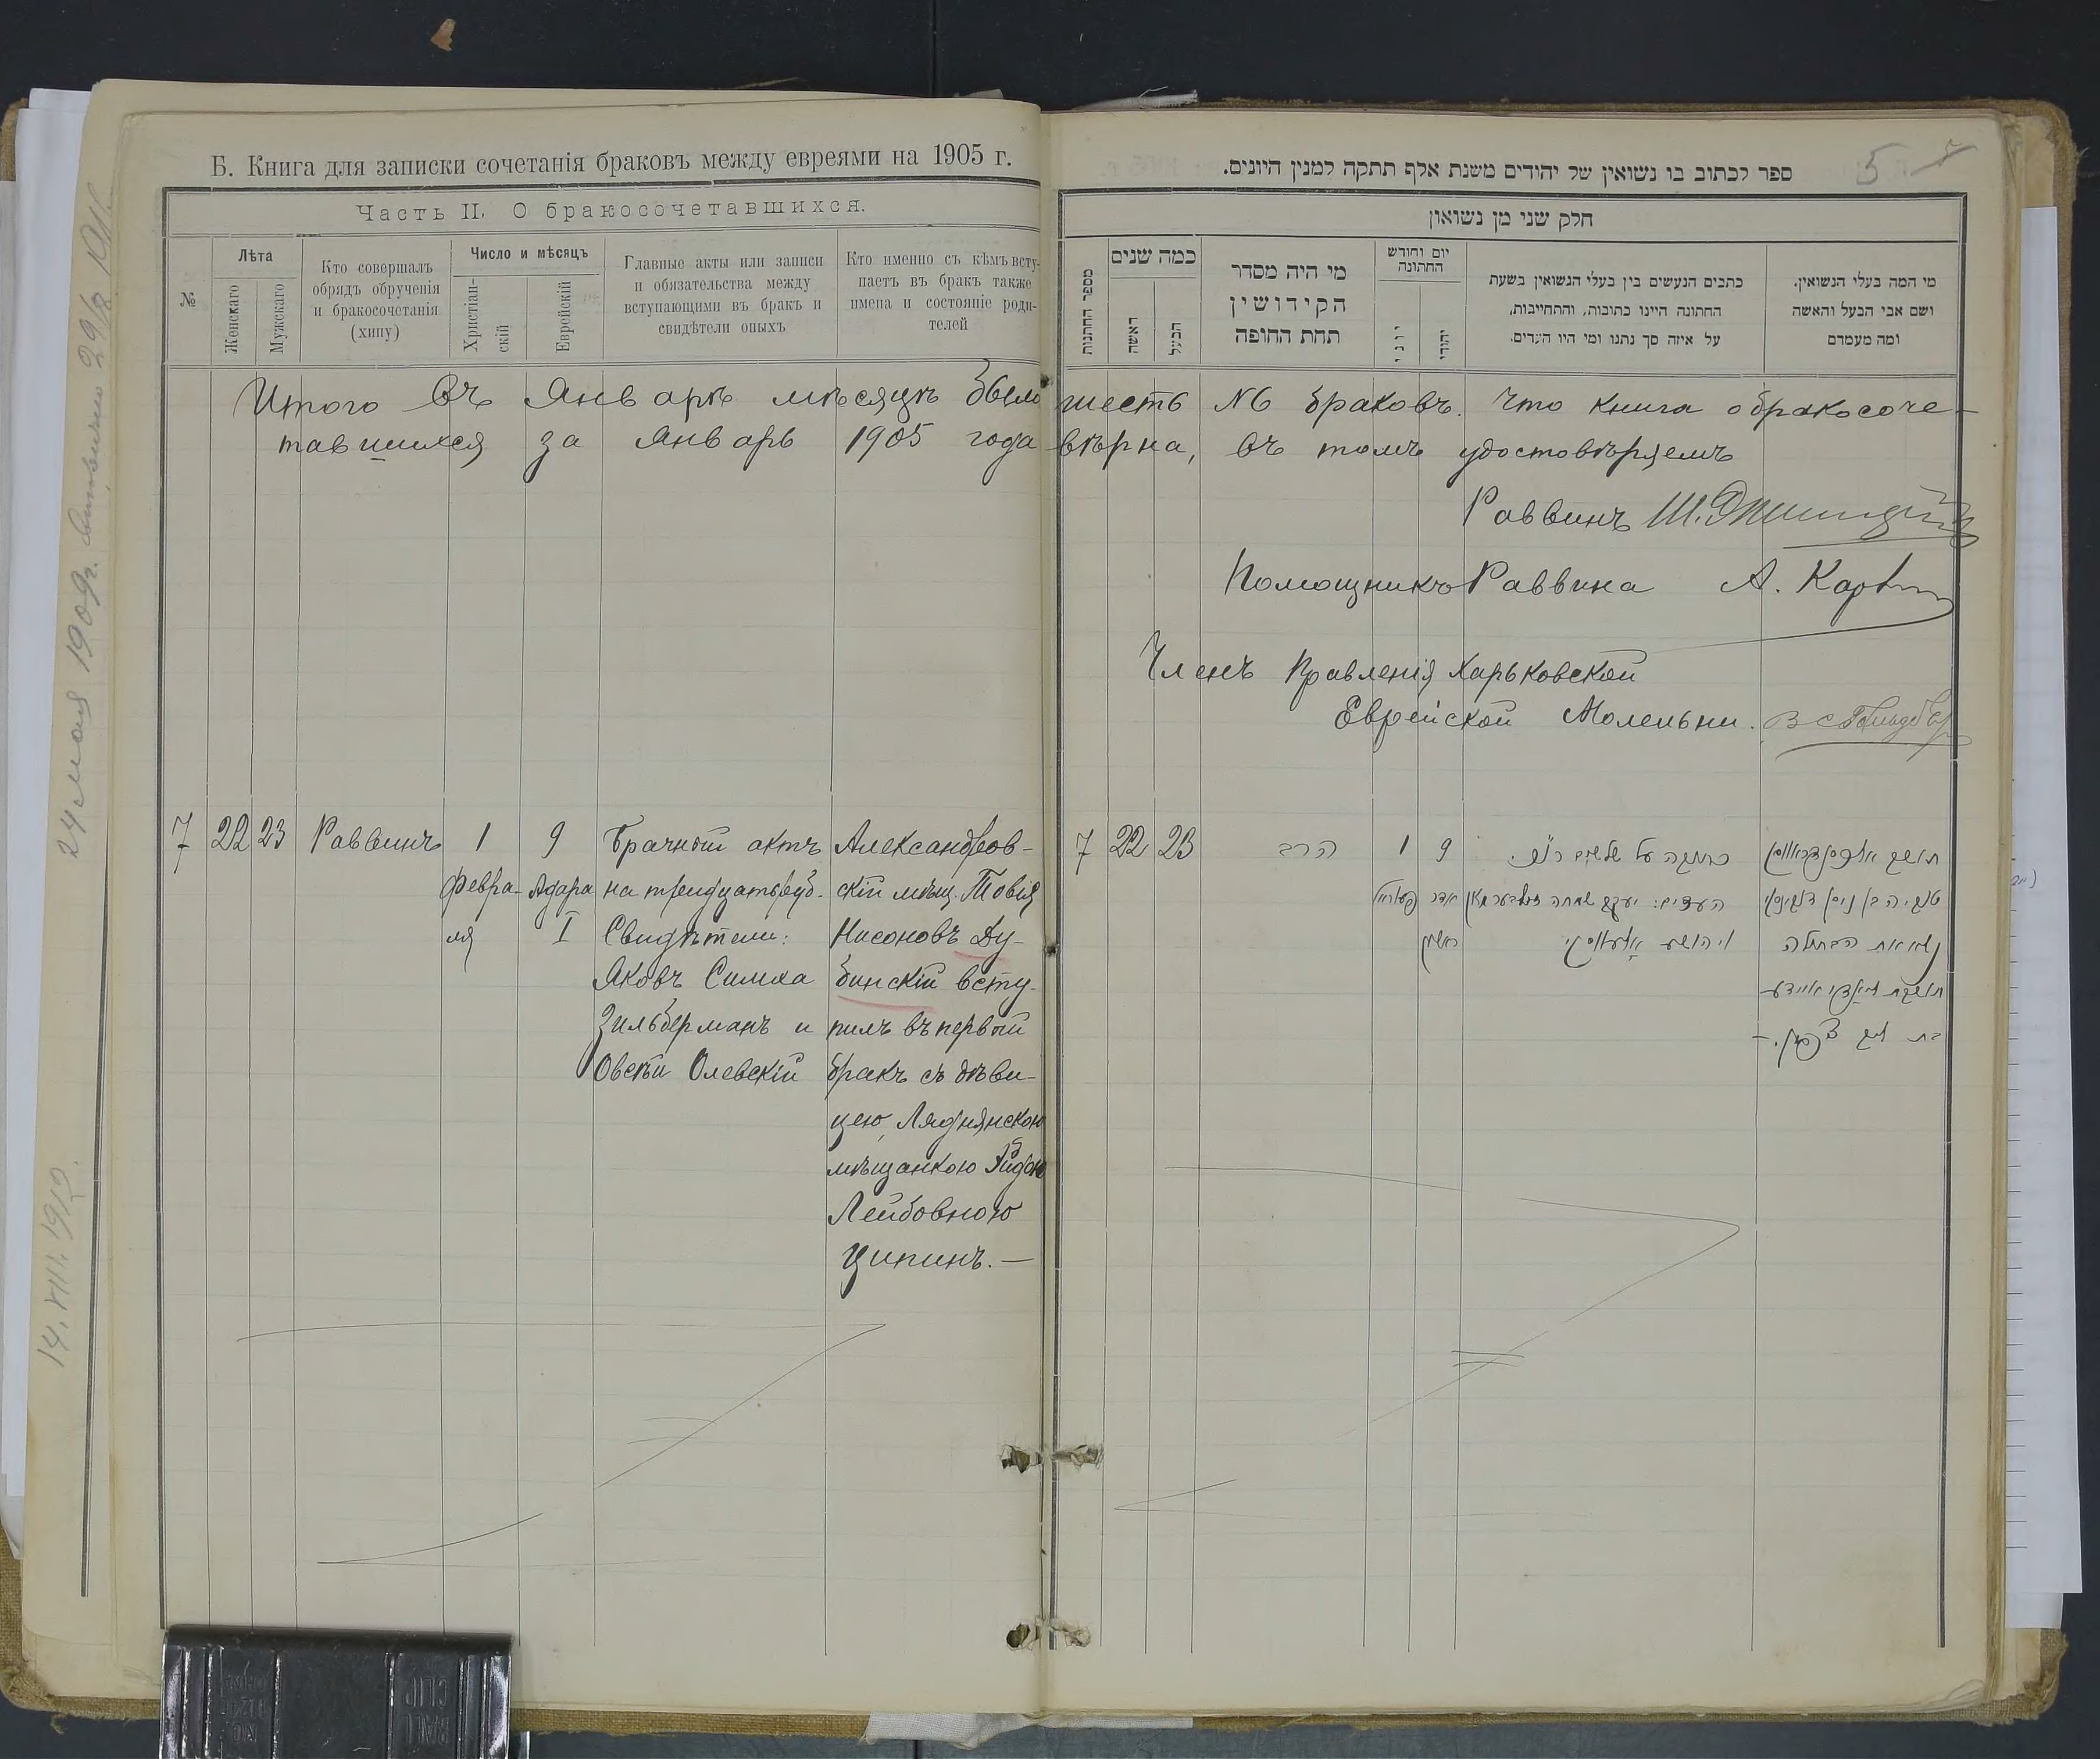 Б. Книга для записки сочетанія браковъ между евреями на 1905 г.
Часть II. О бракосочетавшихся.
№
Лѣта
Женскаго
Мужскаго
Кто совершалъ
обрядъ обрученія
и бракосочетанія
(хипу)
Число и мѣсяцъ
Христіан-
скій
Еврейскій
Главные акты или записи
и обязательства между
вступающими въ бракъ и
свидѣтели оныхъ
Кто именно съ кѣмъ всту-
паетъ въ бракъ также
имена и состояніе роди-
телей
ספר לכתוב בו נשואין של יהודים משנת אלף תתקה למנין היונים.
5
חלק שני מן נשואון
מספר החתונות
כמה שנים
האשה
הבעל
מי היה מסדר
הקידושין
תחת החופה
יום וחודש
החתונה
יוני
יהודי
כתבים הנעשים בין בעלי הנשואין בשעת
החתונה היינו כתובות, והתחייבות,
על איזה סך נתנו ומי היו העדים.
מי המה בעלי הנשואין.
ושם אבי הבעל והאשה
ומה מעמדם
Итого въ Январѣ мѣсяцѣ было шесть №6 браковъ. Что книга о бракосоче-
тавшихся за Январь 1905 года вѣрна, въ томъ удостовѣряемъ
Раввинъ Ш.
Помощникъ Раввина А.
Членъ Правленія Харьковской
Еврейской Молельни.
7 22 23 Раввинъ 1 9 Брачный актъ Александров-
февра- Адара на тридцать руб. скій мѣщ. Товія
ля I Свидѣтели: Нисоновъ Ду-
Яковъ Симха бинскій всту-
Зильберманъ и пилъ въ первый
Овсѣй Олевскій бракъ съ дѣви-
цею, Ляднянскою
мѣщанкою Эйдою
Лейбовною
Ципинъ. —
7 22 23 הרב 1 9
אדר
ראשון
העדים: יעקב שמחה זילבערמאן
ויהושע אלעווסקי
נשא את הבתולה
24 мая 1909г.
14.VIII.1912.